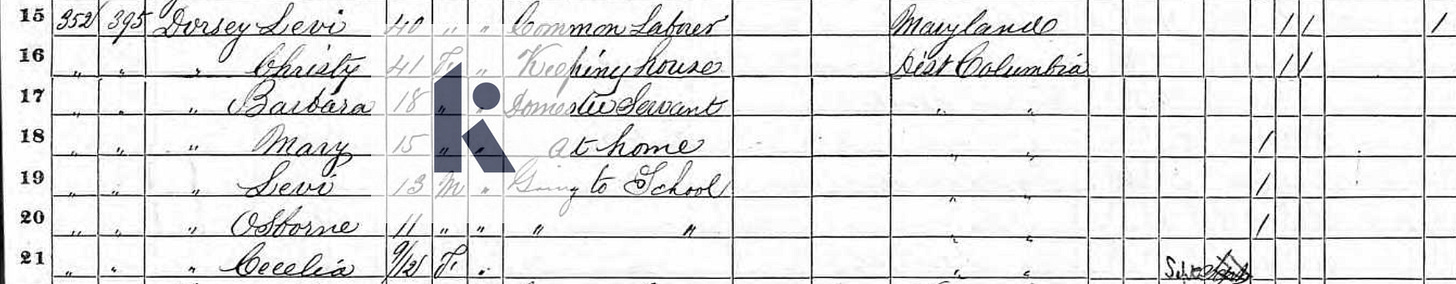 15 352 395 Dorsey Levi 40 " " Common Laborer Maryland 1 1 1
16 " " " Christy 41 F " Keeping house Dist Columbia 1 1
17 " " " Barbara 18 " " Domestic Servant " "
18 " " " Mary 15 " " at home " " 1
19 " " " Levi 13 M " Going to School " " 1
20 " " " Osborne 11 " " " " " " 1
21 " " " Cecelia 9/12 F "  " "